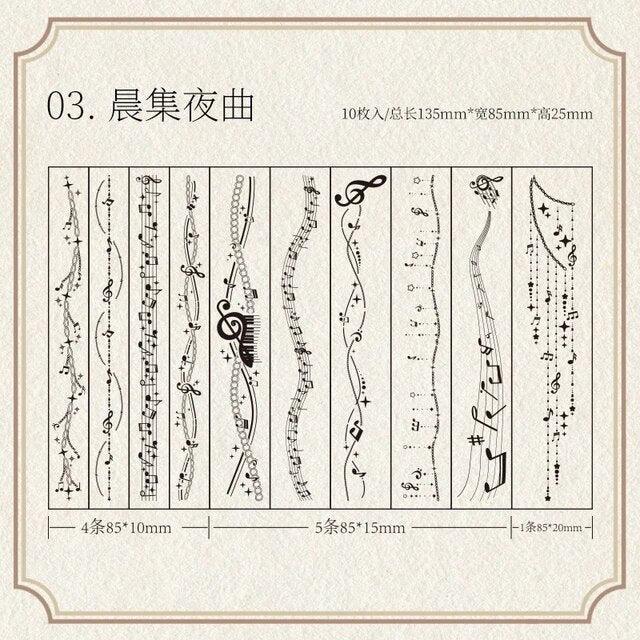 03. 晨集夜曲
10枚入/总长135mm*宽85mm*高25mm
4条85*10mm
5条85*15mm
1条85*20mm